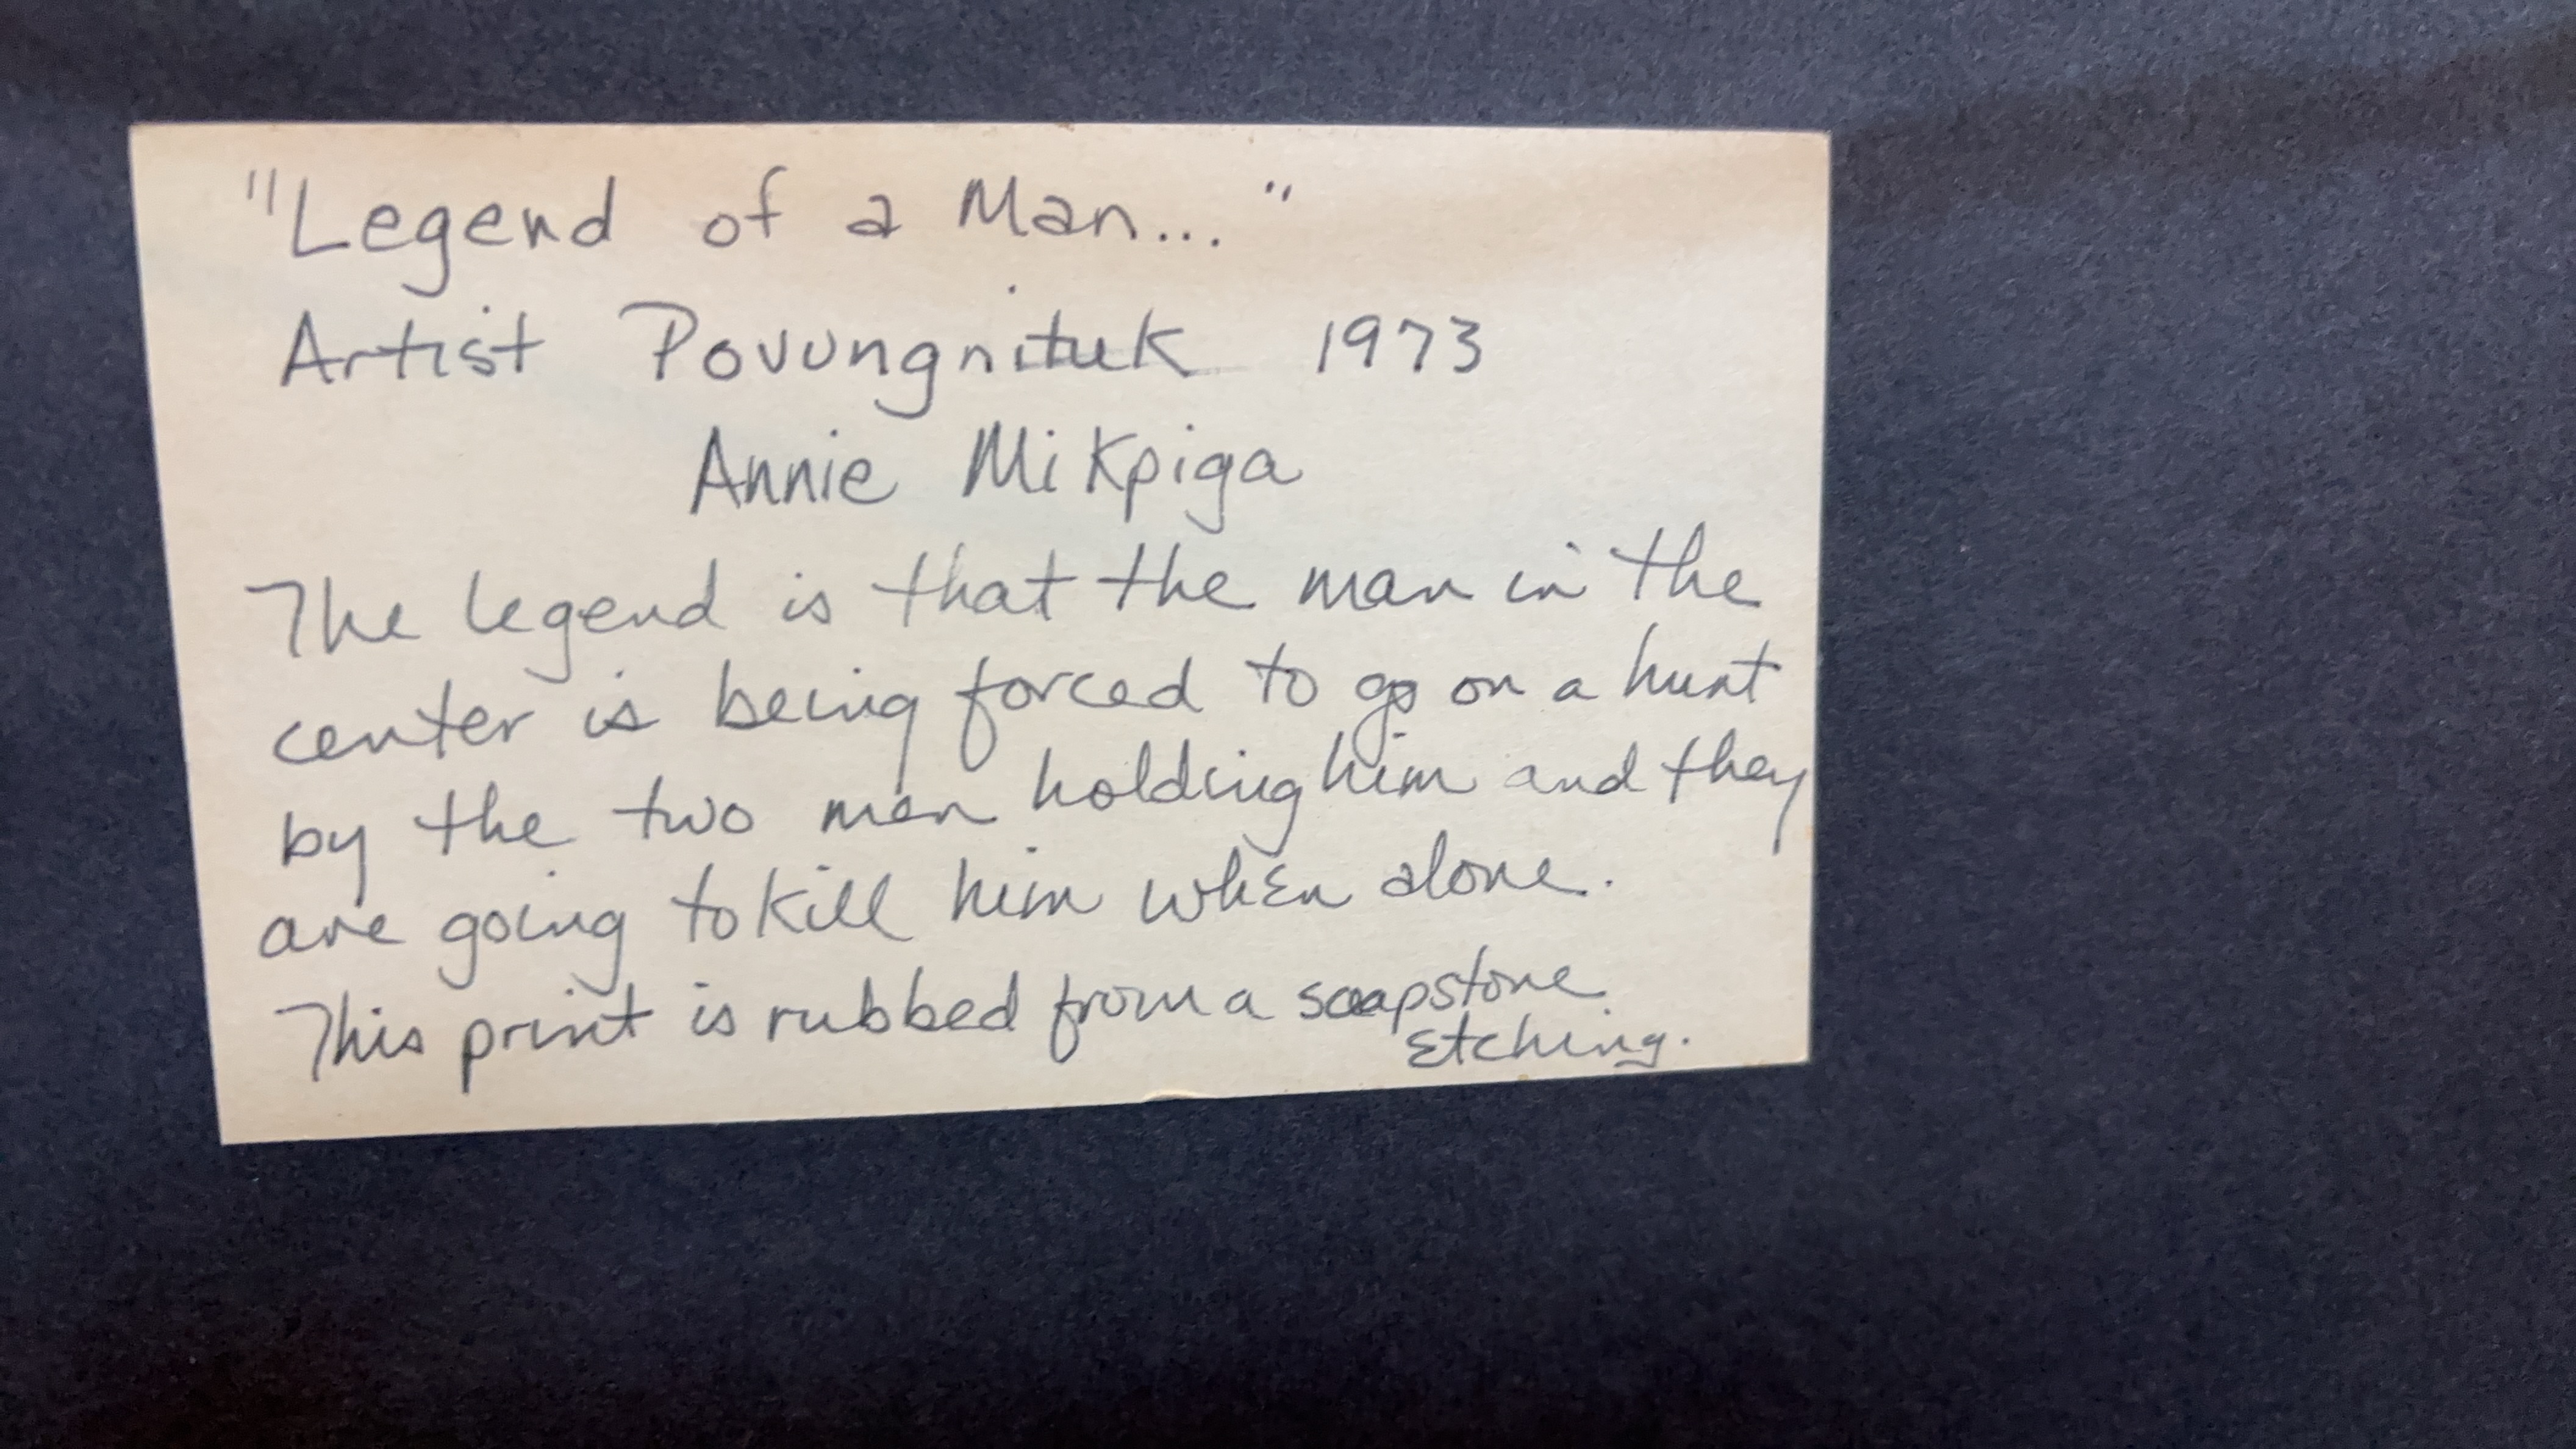 "Legend of a Man..."
Artist Povungnituk 1973
Annie Mikpiga
The legend is that the man in the
center is being forced to go on a hunt
by the two men holding him and they
are going to kill him when alone.
This print is rubbed from a soapstone
Etching.